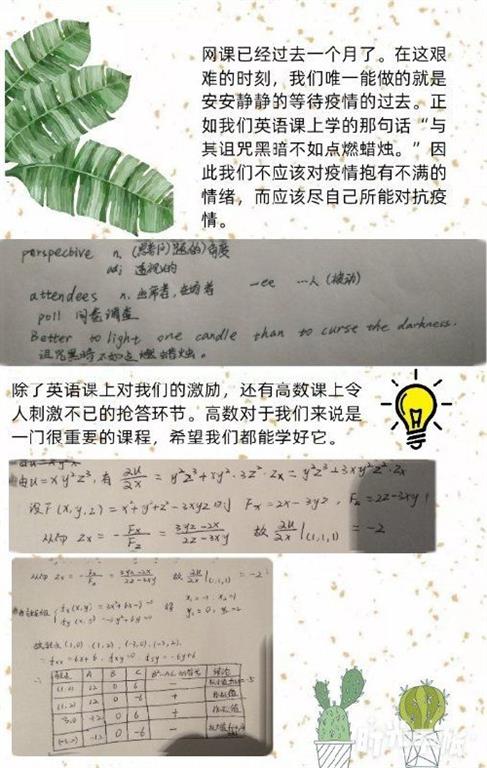 网课已经过去一个月了。在这艰
难的时刻，我们唯一能做的就是
安安静静的等待疫情的过去。正
如我们英语课上学的那句话“与
其诅咒黑暗不如点燃蜡烛。”因
此我们不应该对疫情抱有不满的
情绪，而应该尽自己所能对抗疫
情。
perspective n. (思考问题的)角度
adj 透视的
attendees n. 出席者，在场者 -ee …人（被动）
poll 问卷调查
Better to light one candle than to curse the darkness.
诅咒黑暗不如点燃蜡烛。
除了英语课上对我们的激励，还有高数课上令
人刺激不已的抢答环节。高数对于我们来说是
一门很重要的课程，希望我们都能学好它。
由u=xy²z³，有 ∂u/∂x = y²z³+xy²·3z²·Zx = y²z³+3xy²z²·Zx
设F(x,y,z)=x²+y²+z²-3xyz 则 Fx=2x-3yz，Fz=2z-3xy
从而 Zx = -Fx/Fz = (3yz-2x)/(2z-3xy) 故 ∂u/∂x|(1,1,1) = -2
从而 Zx = -Fx/Fz = (3yz-2x)/(2z-3xy) 故 ∂u/∂x|(1,1,1) = -2
fx(x,y)=3x²+6x-9=0 得 x₁=-3 x₂=1
fy(x,y)=-3y²+6y=0 y₁=0, y₂=2
(1,0), (1,2), (-3,0), (-3,2),
fxx=6x+6, fxy=0 fyy=-6y+6
A B C 结论
(1,0) 12 0 6 - -5
(1,2) 12 0 -6 + 非极值
-3,0) -12 0 6 + 非极值
(-3,2) -12 0 -6 -